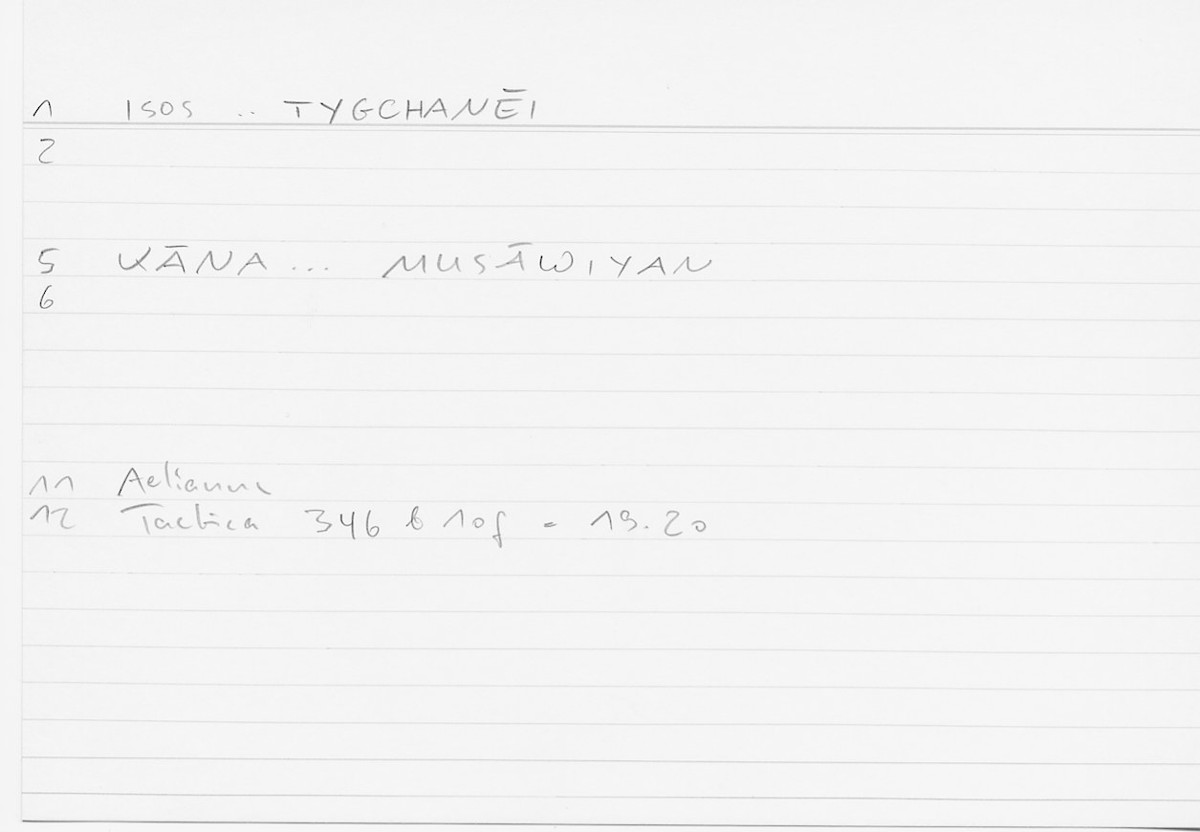 1 ISOS .. TYGCHANĒI
2
5 KĀNA ... MUSĀWIYAN
6
11 Aelianus
12 Tactica 346 b 10f = 19.20